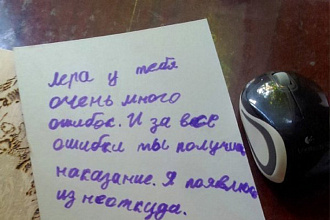 Лера у тебя
очень много
ошибок. И за все
ошибки ты получиш
наказание. Я появлюс
из неоткуда.